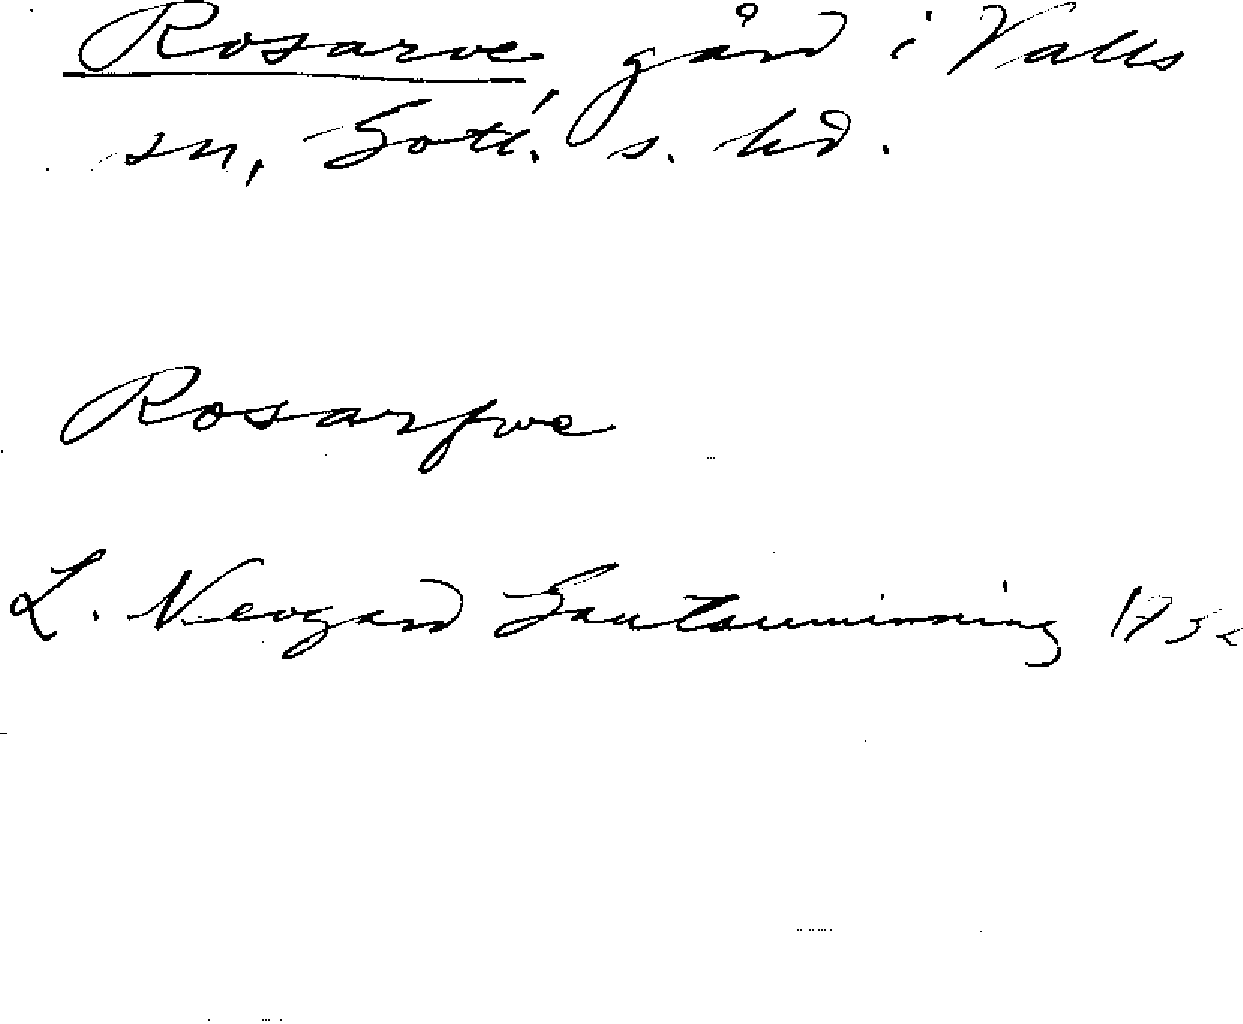 Rosarve, gård i Valls
sn, Gotl. s. hd.
Rosarfwe
L. Neogard Gautauminning 1732